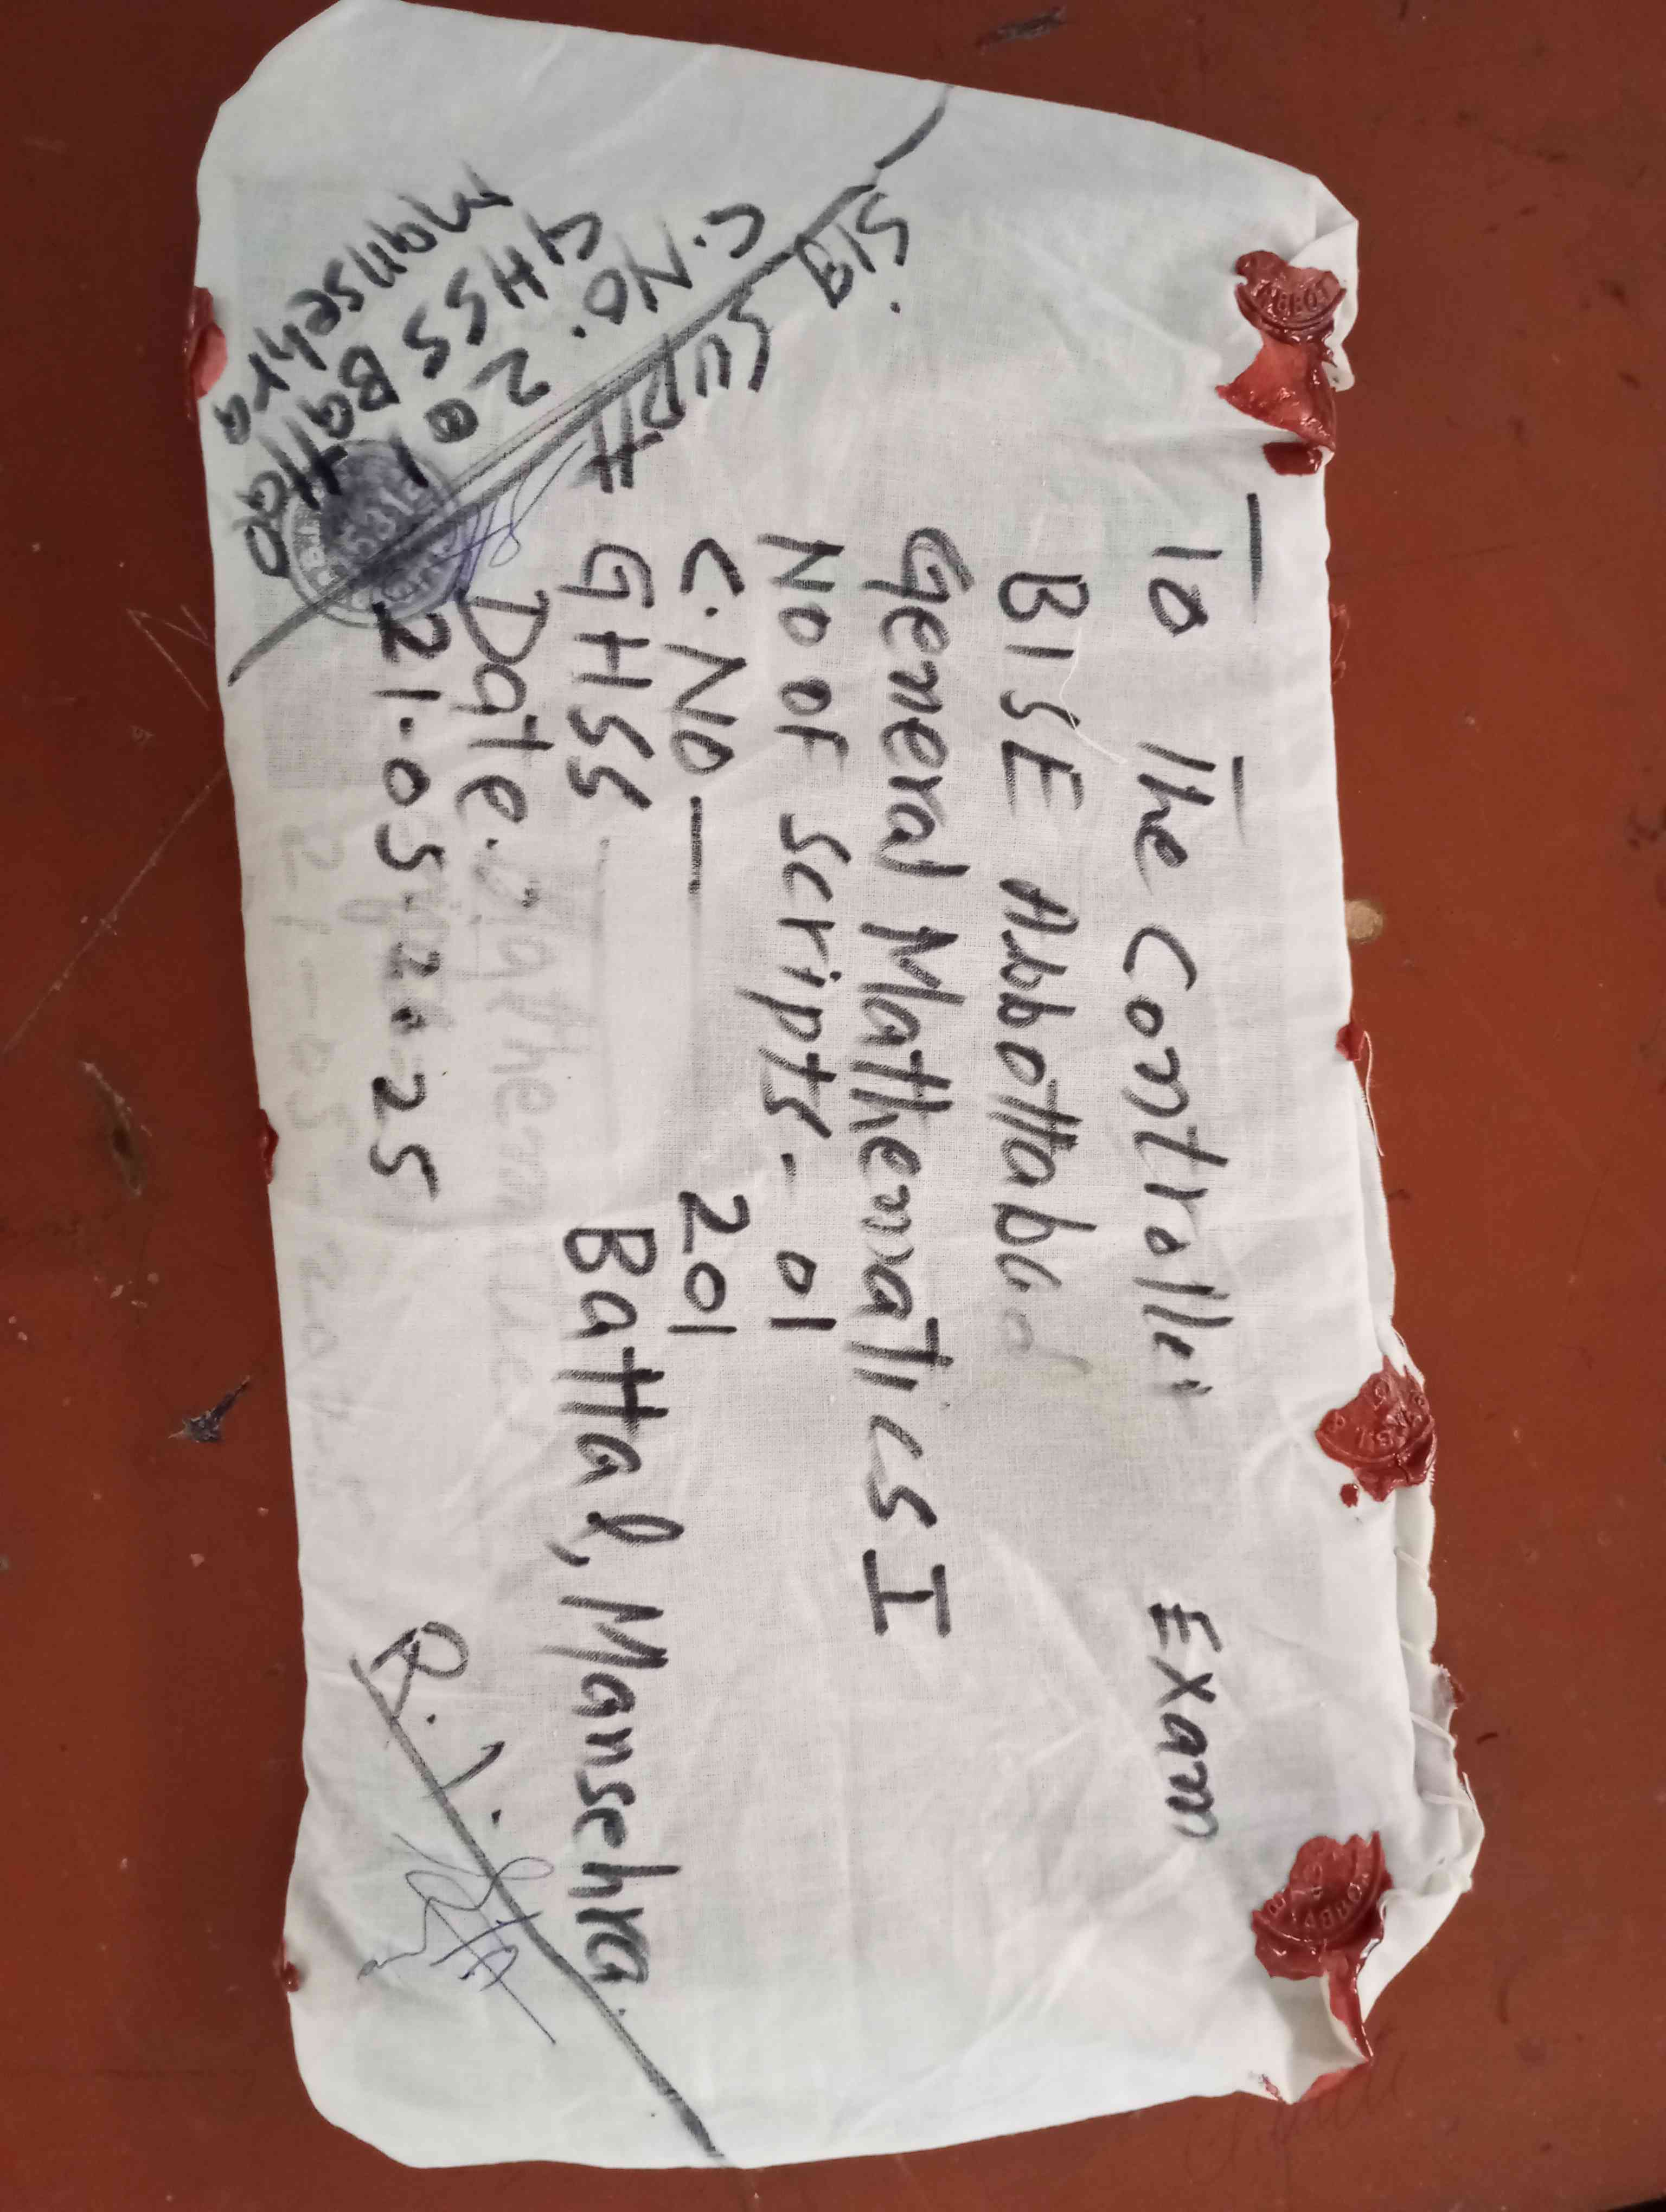 To The Controller Exam
BISE Abbottabad
General Mathematics I
No OF Scripts - 01
C.No — 201
GHSS Battal, Mansehra.
Date.
21.05.2025
Sig. Supdt
C.No. 201
GHSS Battal
Mansehra
R.I.